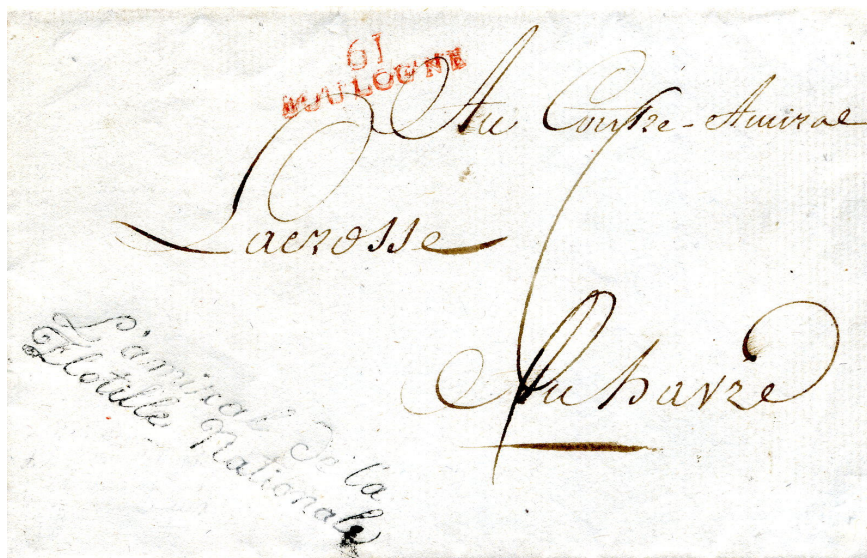 61
BOULOGNE
Au Contre-Amiral
Lacrosse
Au havre
L'amiral de la
Flotille Nationale